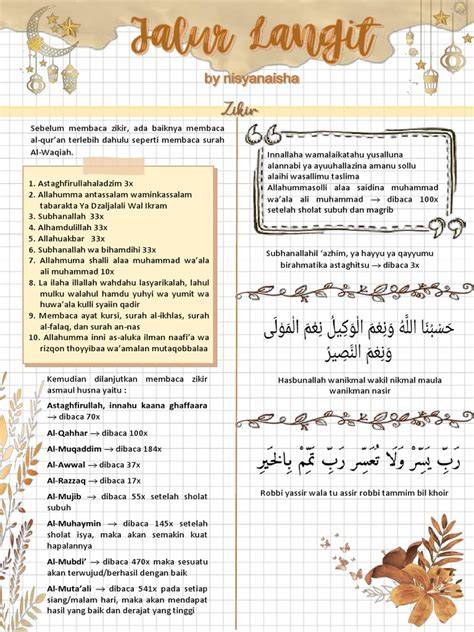 Jalur Langit
by nisyanaisha
Zikir
Sebelum membaca zikir, ada baiknya membaca
al-qur'an terlebih dahulu seperti membaca surah
Al-Waqiah.
1. Astaghfirullahaladzim 3x
2. Allahumma antassalam waminkassalam
tabarakta Ya Dzaljalali Wal Ikram
3. Subhanallah 33x
4. Alhamdulillah 33x
5. Allahuakbar 33x
6. Subhanallah wa bihamdihi 33x
7. Allahmuma shalli alaa muhammad wa'ala
ali muhammad 10x
8. La ilaha illallah wahdahu lasyarikalah, lahul
mulku walahul hamdu yuhyi wa yumit wa
huwa'ala kulli syaiin qadir
9. Membaca ayat kursi, surah al-ikhlas, surah
al-falaq, dan surah an-nas
10. Allahumma inni as-aluka ilman naafi'a wa
rizqon thoyyibaa wa'amalan mutaqobbalaa
Kemudian dilanjutkan membaca zikir
asmaul husna yaitu :
Astaghfirullah, innahu kaana ghaffaara
→ dibaca 70x
Al-Qahhar → dibaca 100x
Al-Muqaddim → dibaca 184x
Al-Awwal → dibaca 37x
Al-Razzaq → dibaca 17x
Al-Mujib → dibaca 55x setelah sholat
subuh
Al-Muhaymin → dibaca 145x setelah
sholat isya, maka akan semakin kuat
hapalannya
Al-Mubdi' → dibaca 470x maka sesuatu
akan terwujud/berhasil dengan baik
Al-Muta'ali → dibaca 541x pada setiap
siang/malam hari, maka akan mendapat
hasil yang baik dan derajat yang tinggi
Innallaha wamalaikatahu yusalluna
alannabi ya ayuuhallazina amanu sollu
alaihi wasallimu taslima
Allahummasolli alaa saidina muhammad
wa'ala ali muhammad → dibaca 100x
setelah sholat subuh dan magrib
Subhanallahil 'azhim, ya hayyu ya qayyumu
birahmatika astaghitsu → dibaca 3x
حَسْبُنَا اللَّهُ وَنِعْمَ الْوَكِيْلُ نِعْمَ الْمَوْلَى
وَنِعْمَ النَّصِيْرُ
Hasbunallah wanikmal wakil nikmal maula
wanikman nasir
رَبِّ يَسِّرْ وَلَا تُعَسِّرْ رَبِّ تَمِّمْ بِالْخَيْرِ
Robbi yassir wala tu assir robbi tammim bil khoir